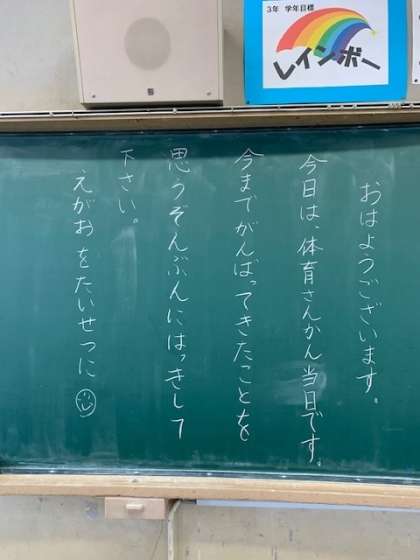 3年 学年目標
レインボー
おはようございます。
今日は、体育さんかん当日です。
今までがんばってきたことを
思うぞんぶんにはっきして
下さい。
えがおをたいせつに